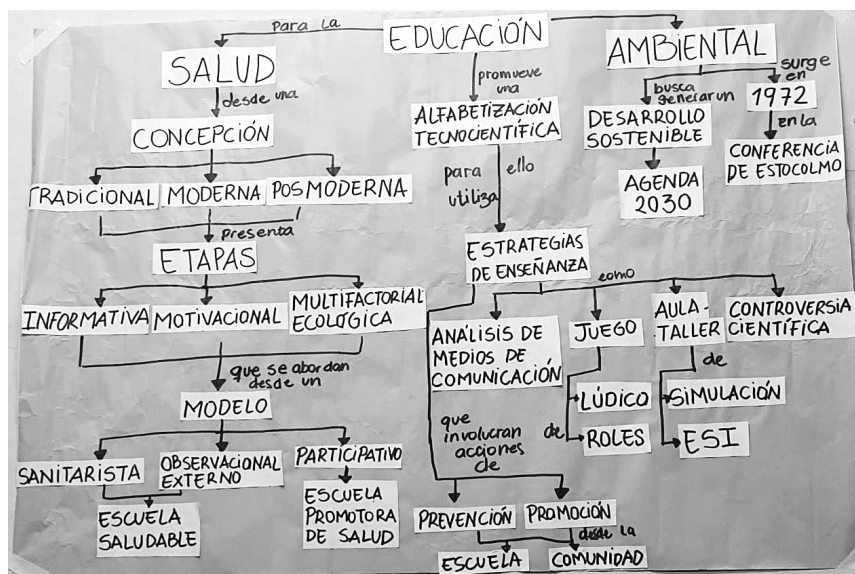 EDUCACIÓN
Para la
SALUD
desde una
CONCEPCIÓN
TRADICIONAL
MODERNA
POSMODERNA
presenta
ETAPAS
INFORMATIVA
MOTIVACIONAL
MULTIFACTORIAL
ECOLÓGICA
que se abordan
desde un
MODELO
SANITARISTA
OBSERVACIONAL
EXTERNO
PARTICIPATIVO
ESCUELA
SALUDABLE
ESCUELA
PROMOTORA
DE SALUD
promueve
una
ALFABETIZACIÓN
TECNOCIENTÍFICA
para ello
utiliza
ESTRATEGIAS
DE ENSEÑANZA
como
ANÁLISIS DE
MEDIOS DE
COMUNICACIÓN
JUEGO
de
LÚDICO
ROLES
AULA-
TALLER
de
SIMULACIÓN
ESI
CONTROVERSIA
CIENTÍFICA
que
involucran
acciones
de
PREVENCIÓN
PROMOCIÓN
desde la
ESCUELA
COMUNIDAD
AMBIENTAL
busca
generar un
DESARROLLO
SOSTENIBLE
AGENDA
2030
surge
en
1972
en la
CONFERENCIA
DE ESTOCOLMO